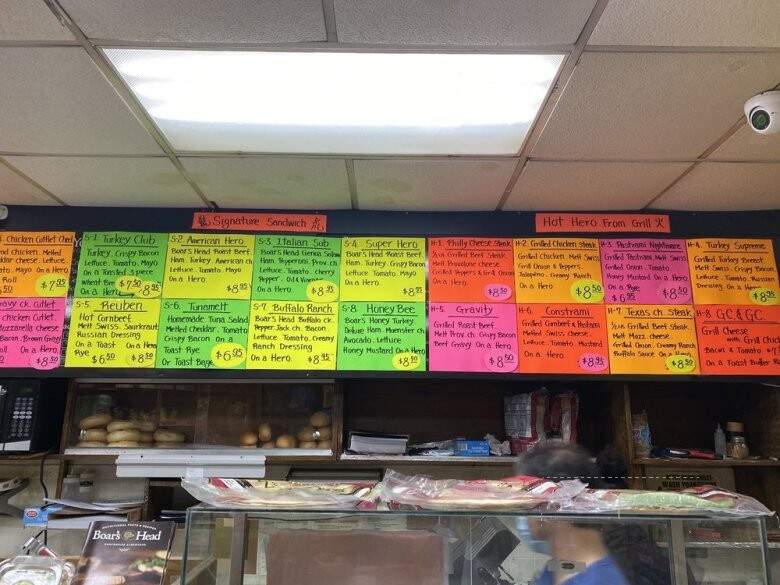 Signature Sandwich
Hot Hero From Grill 火
Chicken Cutlet
chicken. Melted
cheese. Lettuce.
Mayo On a Hero
Roll
$7.95
S-1 Turkey Club
Turkey. Crispy Bacon
Lettuce. Tomato. Mayo
On a Toasted 3 piece
Wheat
$7.50
8.95
S-2 American Hero
Boar's Head Roast Beef.
Ham. Turkey. American ch
Lettuce. Tomato. Mayo
On a Hero.
$8.95
S-3 Italian Sub
Boar's Head Genoa Salami
Ham. Pepperoni. Prov. ch
Lettuce. Tomato. Cherry
Pepper. Oil &
On a Hero.
$8.95
S-4 Super Hero
Boar's Head Roast Beef.
Ham. Turkey. Crispy Bacon
Lettuce. Tomato. Mayo
On a Hero.
$8.95
H-1 Philly Cheese Steak
Grilled Beef Steak.
Melt Provolone cheese.
Grilled Peppers & Grill Onion
On a Hero.
$8.50
H-2 Grilled Chicken Steak
Grilled Chicken. Melt Swiss
Grill Onion & Peppers.
Jalapeno. Creamy Ranch
On a Hero.
$8.50
H-3 Pastrami Nightmare
Grilled Pastrami. Melt Swiss
Grilled Onion. Tomato
Honey Mustard. On a Hero
$6.95
$8.50
H-4 Turkey Supreme
Grilled Turkey Breast
Melt Swiss. Crispy Bacon
Lettuce. Tomato. Russian
Dressing
On a Hero.
$8.50
Gravy ck. cutlet
chicken Cutlet.
Mozzarella cheese
Bacon. Brown Gravy
On a Hero
$8.50
S-5 Reuben
Hot Cornbeef
Melt Swiss. Saurkraut
Russian Dressing
On a Toast
On a Hero
Rye
$6.50
$8.50
S-6 Tunamelt
Homemade Tuna Salad
Melted Cheddar. Tomato
Crispy Bacon on a
Toast Rye
Or Toast Bagel
$6.95
S-7 Buffalo Ranch
Boar's Head Buffalo ck.
Pepper Jack ch. Bacon
Lettuce. Tomato. Creamy
Ranch Dressing
On a Hero.
$8.95
S-8 Honey Bee
Boar's Honey Turkey
Deluxe Ham. Muenster ch
Avocado. Lettuce
Honey Mustard On a Hero
$8.95
H-5 Gravity
Grilled Roast Beef
Melt Prov ch. Crispy Bacon
Beef Gravy On a Hero.
$8.50
H-6 Constrami
Grilled Cornbeef & Pastrami
Melted Swiss cheese
Lettuce. Tomato. Mustard
On a Hero.
$8.50
H-7 Texas ch. Steak
Grilled Beef Steak.
Melt Mozz. cheese.
Grilled Onion. Creamy Ranch
Buffalo Sauce On a Hero
$8.50
H-8 GC & GC
Grill Cheese
with Grill Chicken
Bacon & Tomato
On a Toast Butter
Boar's Head